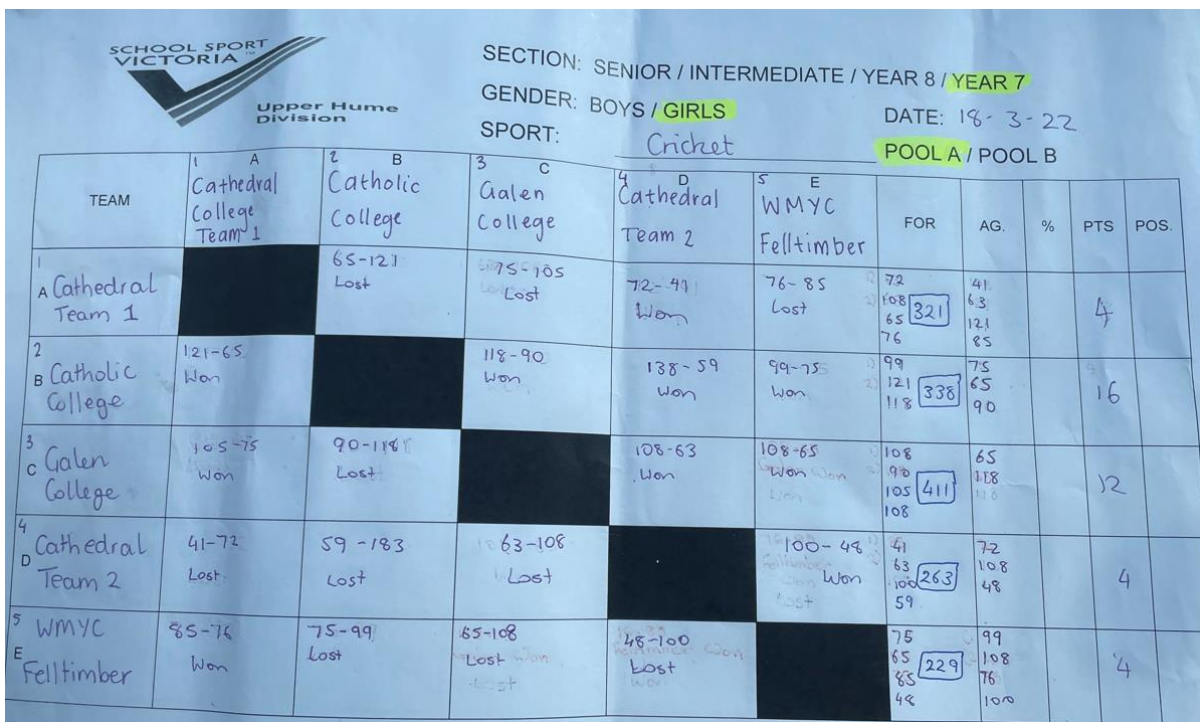 SCHOOL SPORT
VICTORIA
Upper Hume
Division
SECTION: SENIOR / INTERMEDIATE / YEAR 8 / YEAR 7
GENDER: BOYS / GIRLS
DATE: 18-3-22
SPORT: Cricket
POOL A / POOL B
TEAM
1 A
Cathedral
College
Team 1
2 B
Catholic
College
3 C
Galen
College
4 D
Cathedral
Team 2
5 E
WMYC
Felltimber
FOR
AG.
%
PTS
POS.
1
A Cathedral
Team 1
65-121
Lost
75-105
Lost
72-41
Won
76-85
Lost
72
108
65
76
321
41
63
121
85
4
2
B Catholic
College
121-65
Won
118-90
Won
138-59
Won
99-75
Won
99
121
118
338
75
65
90
16
3
C Galen
College
105-75
Won
90-118
Lost
108-63
Won
108-65
Won
108
90
105
108
411
65
118
118
12
4
D Cathedral
Team 2
41-72
Lost
59-183
Lost
63-108
Lost
100-48
Won
41
63
100
59
263
72
108
48
4
5
E WMYC
Felltimber
85-76
Won
75-99
Lost
65-108
Lost
48-100
Lost
75
65
85
48
229
99
108
76
100
4